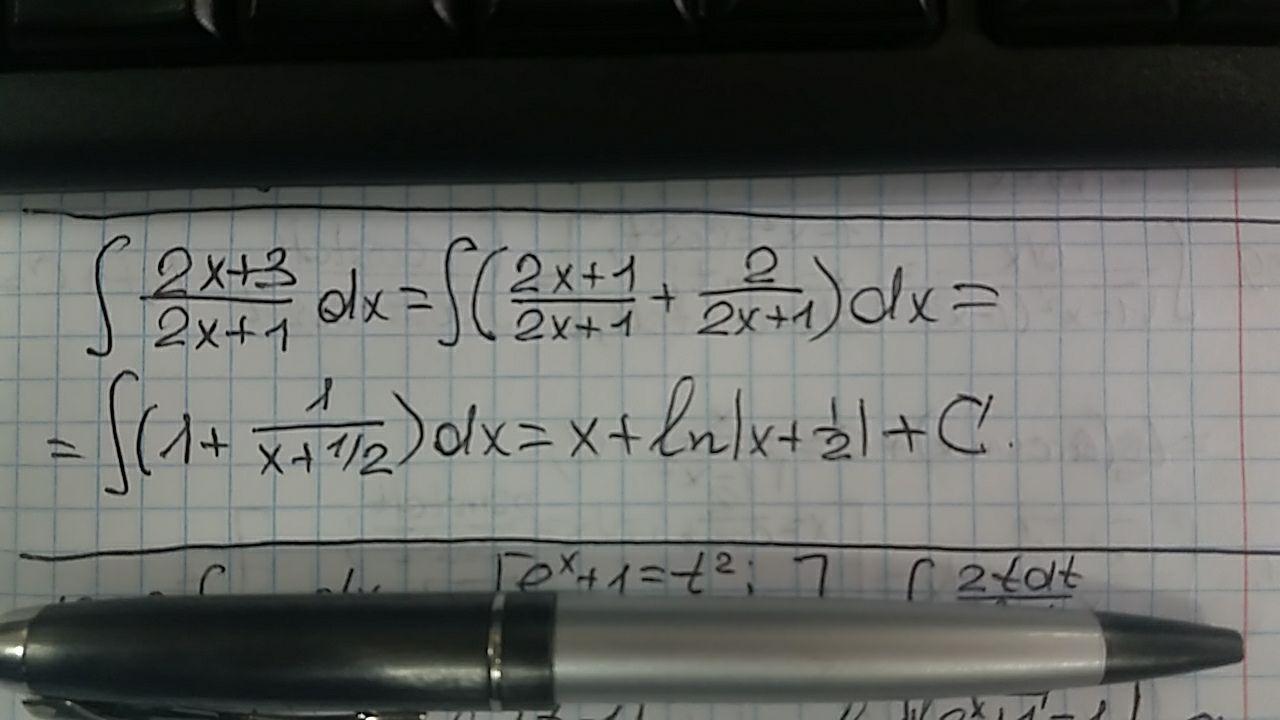 ∫ (2x+3)/(2x+1) dx = ∫ ( (2x+1)/(2x+1) + 2/(2x+1) ) dx =
= ∫ (1 + 1/(x+1/2)) dx = x + ln|x + 1/2| + C.
∫ dx [e^x+1=t²; ] ∫ 2tdt